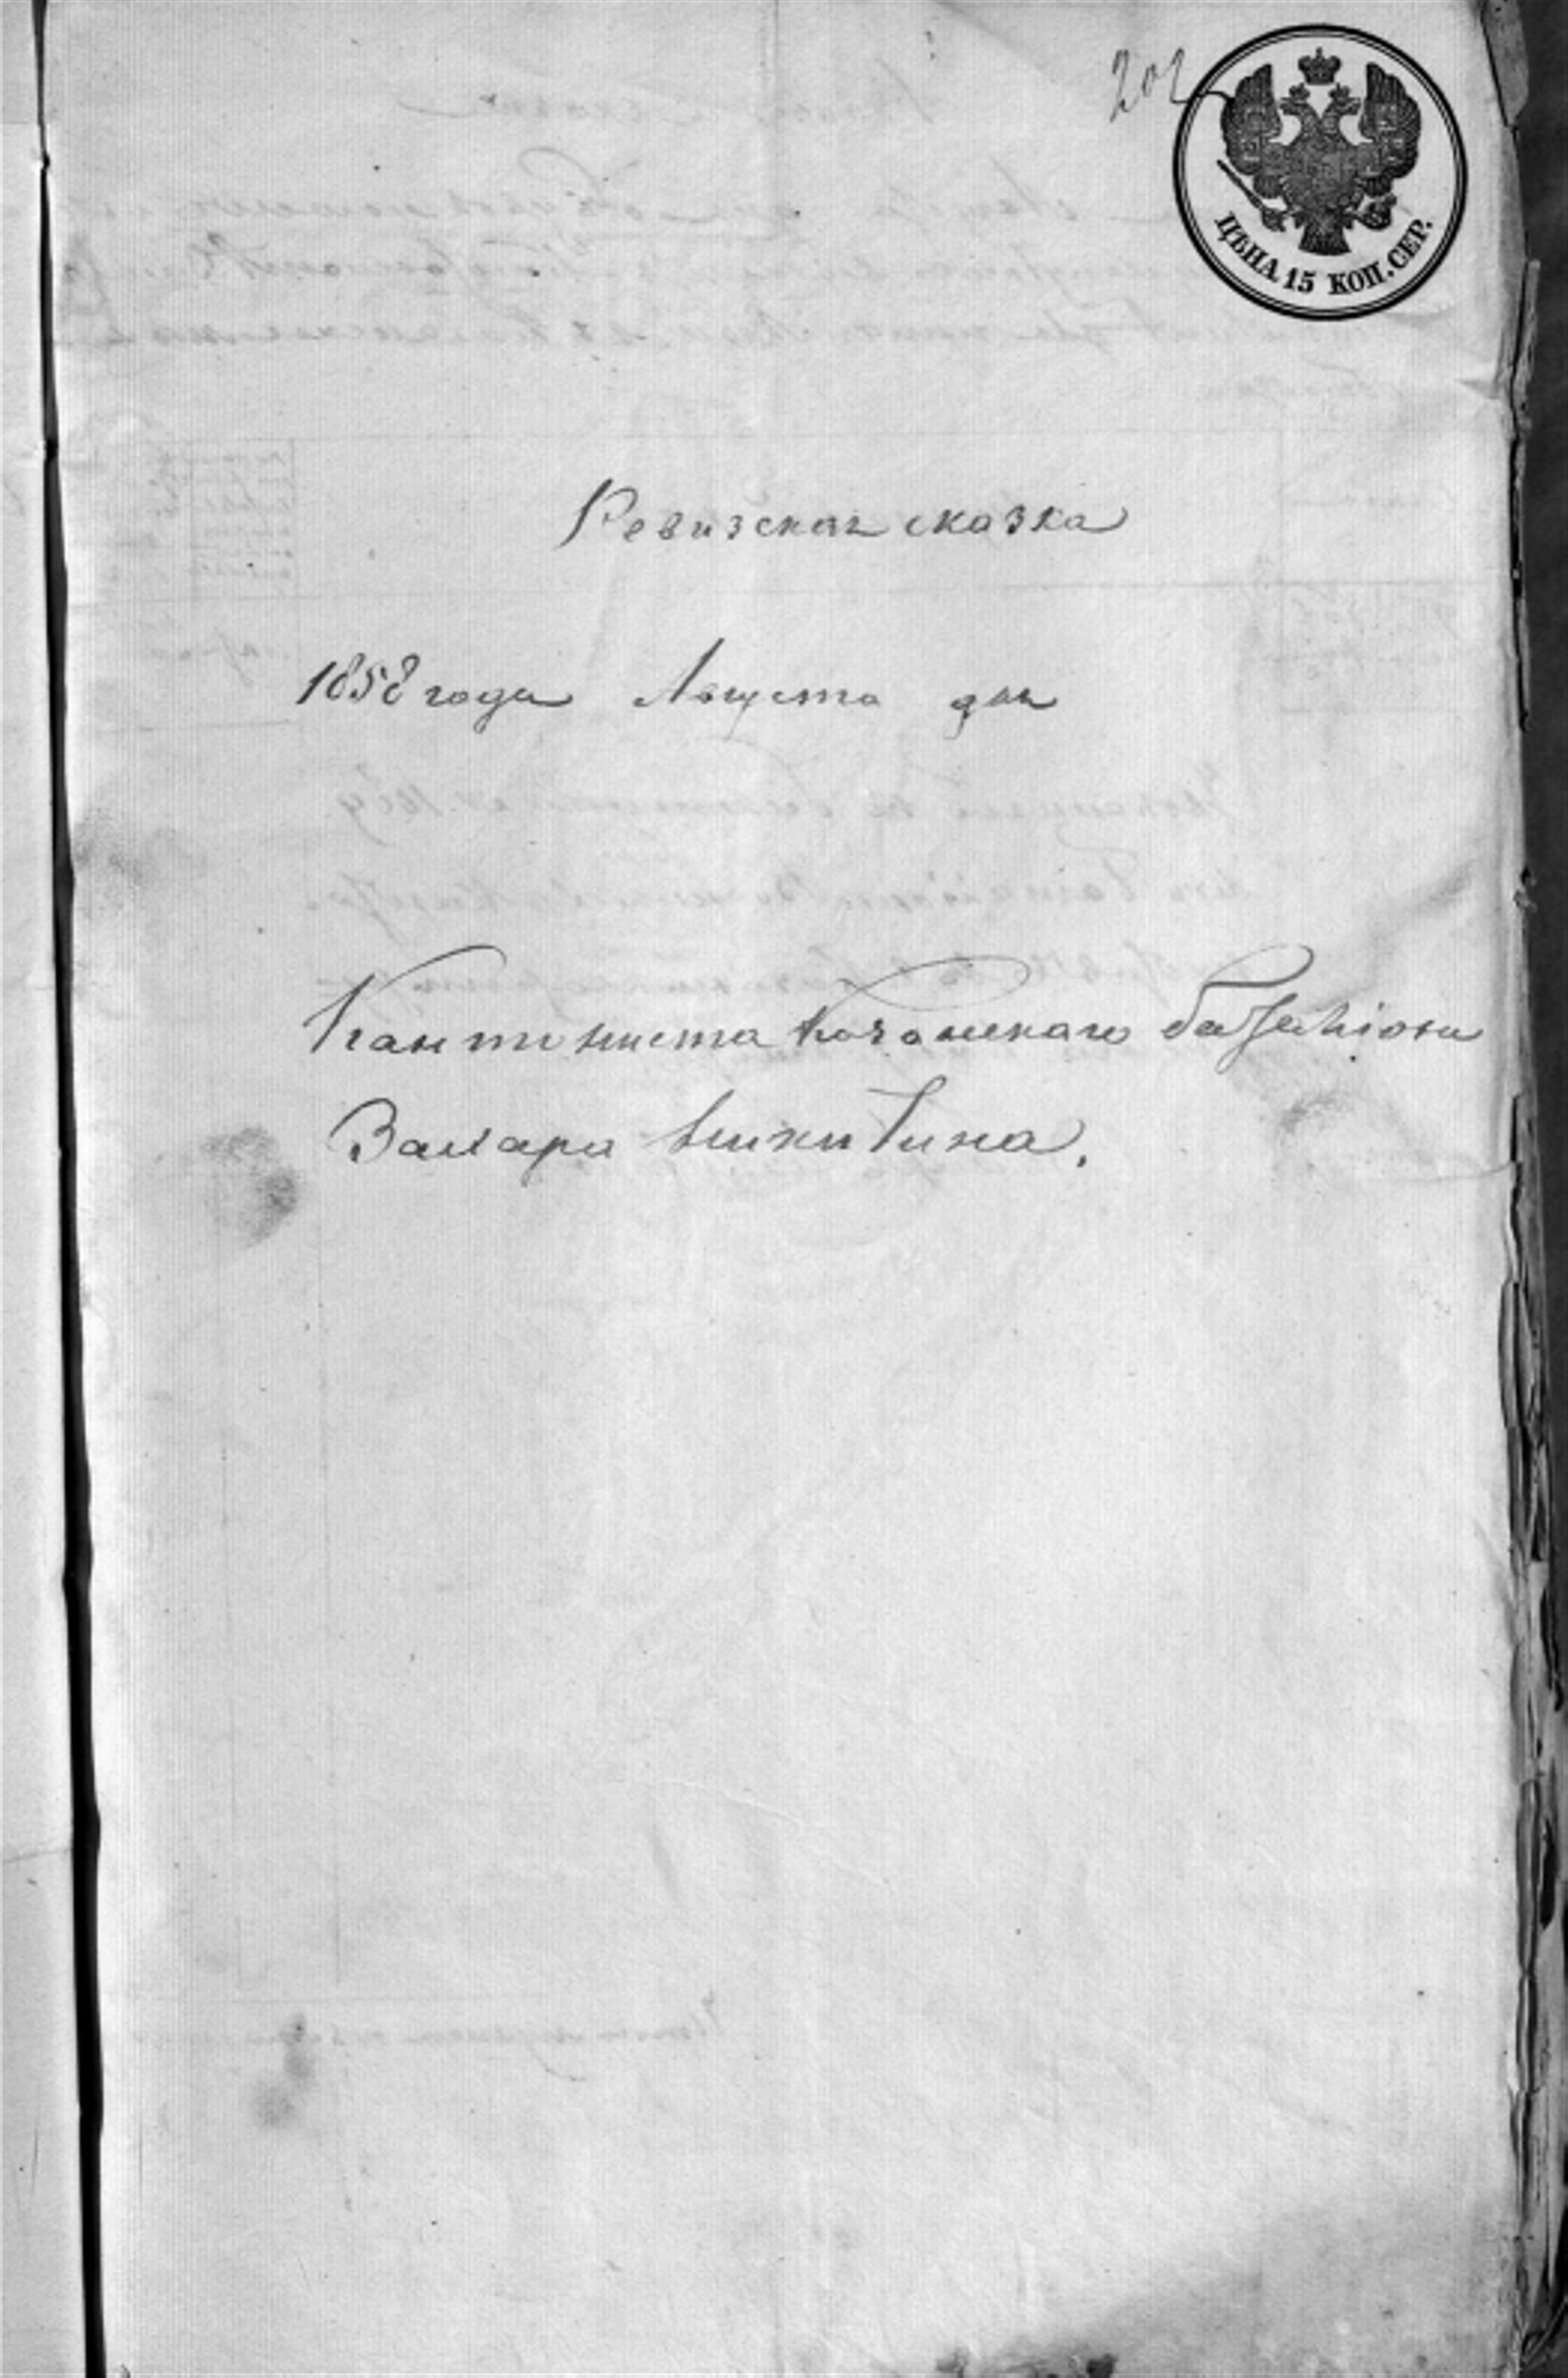 202
ЦѢНА 15 КОП. СЕР.
Ревизская сказка
1858 года Августа дня
Кантониста Казанскаго баталіона
Захара Никитина.